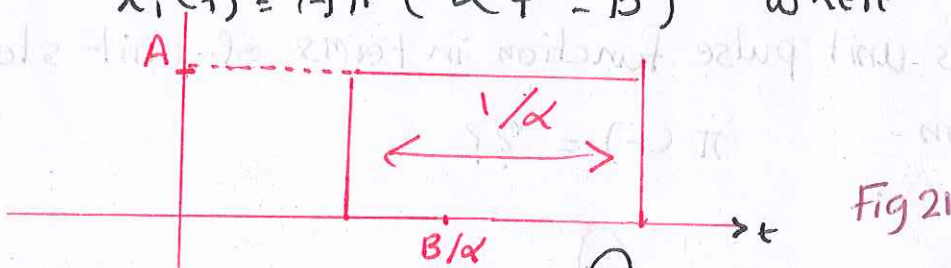 x₁(t) = Aπ (αt - B) when
A
1/α
B/α
t
Fig 21